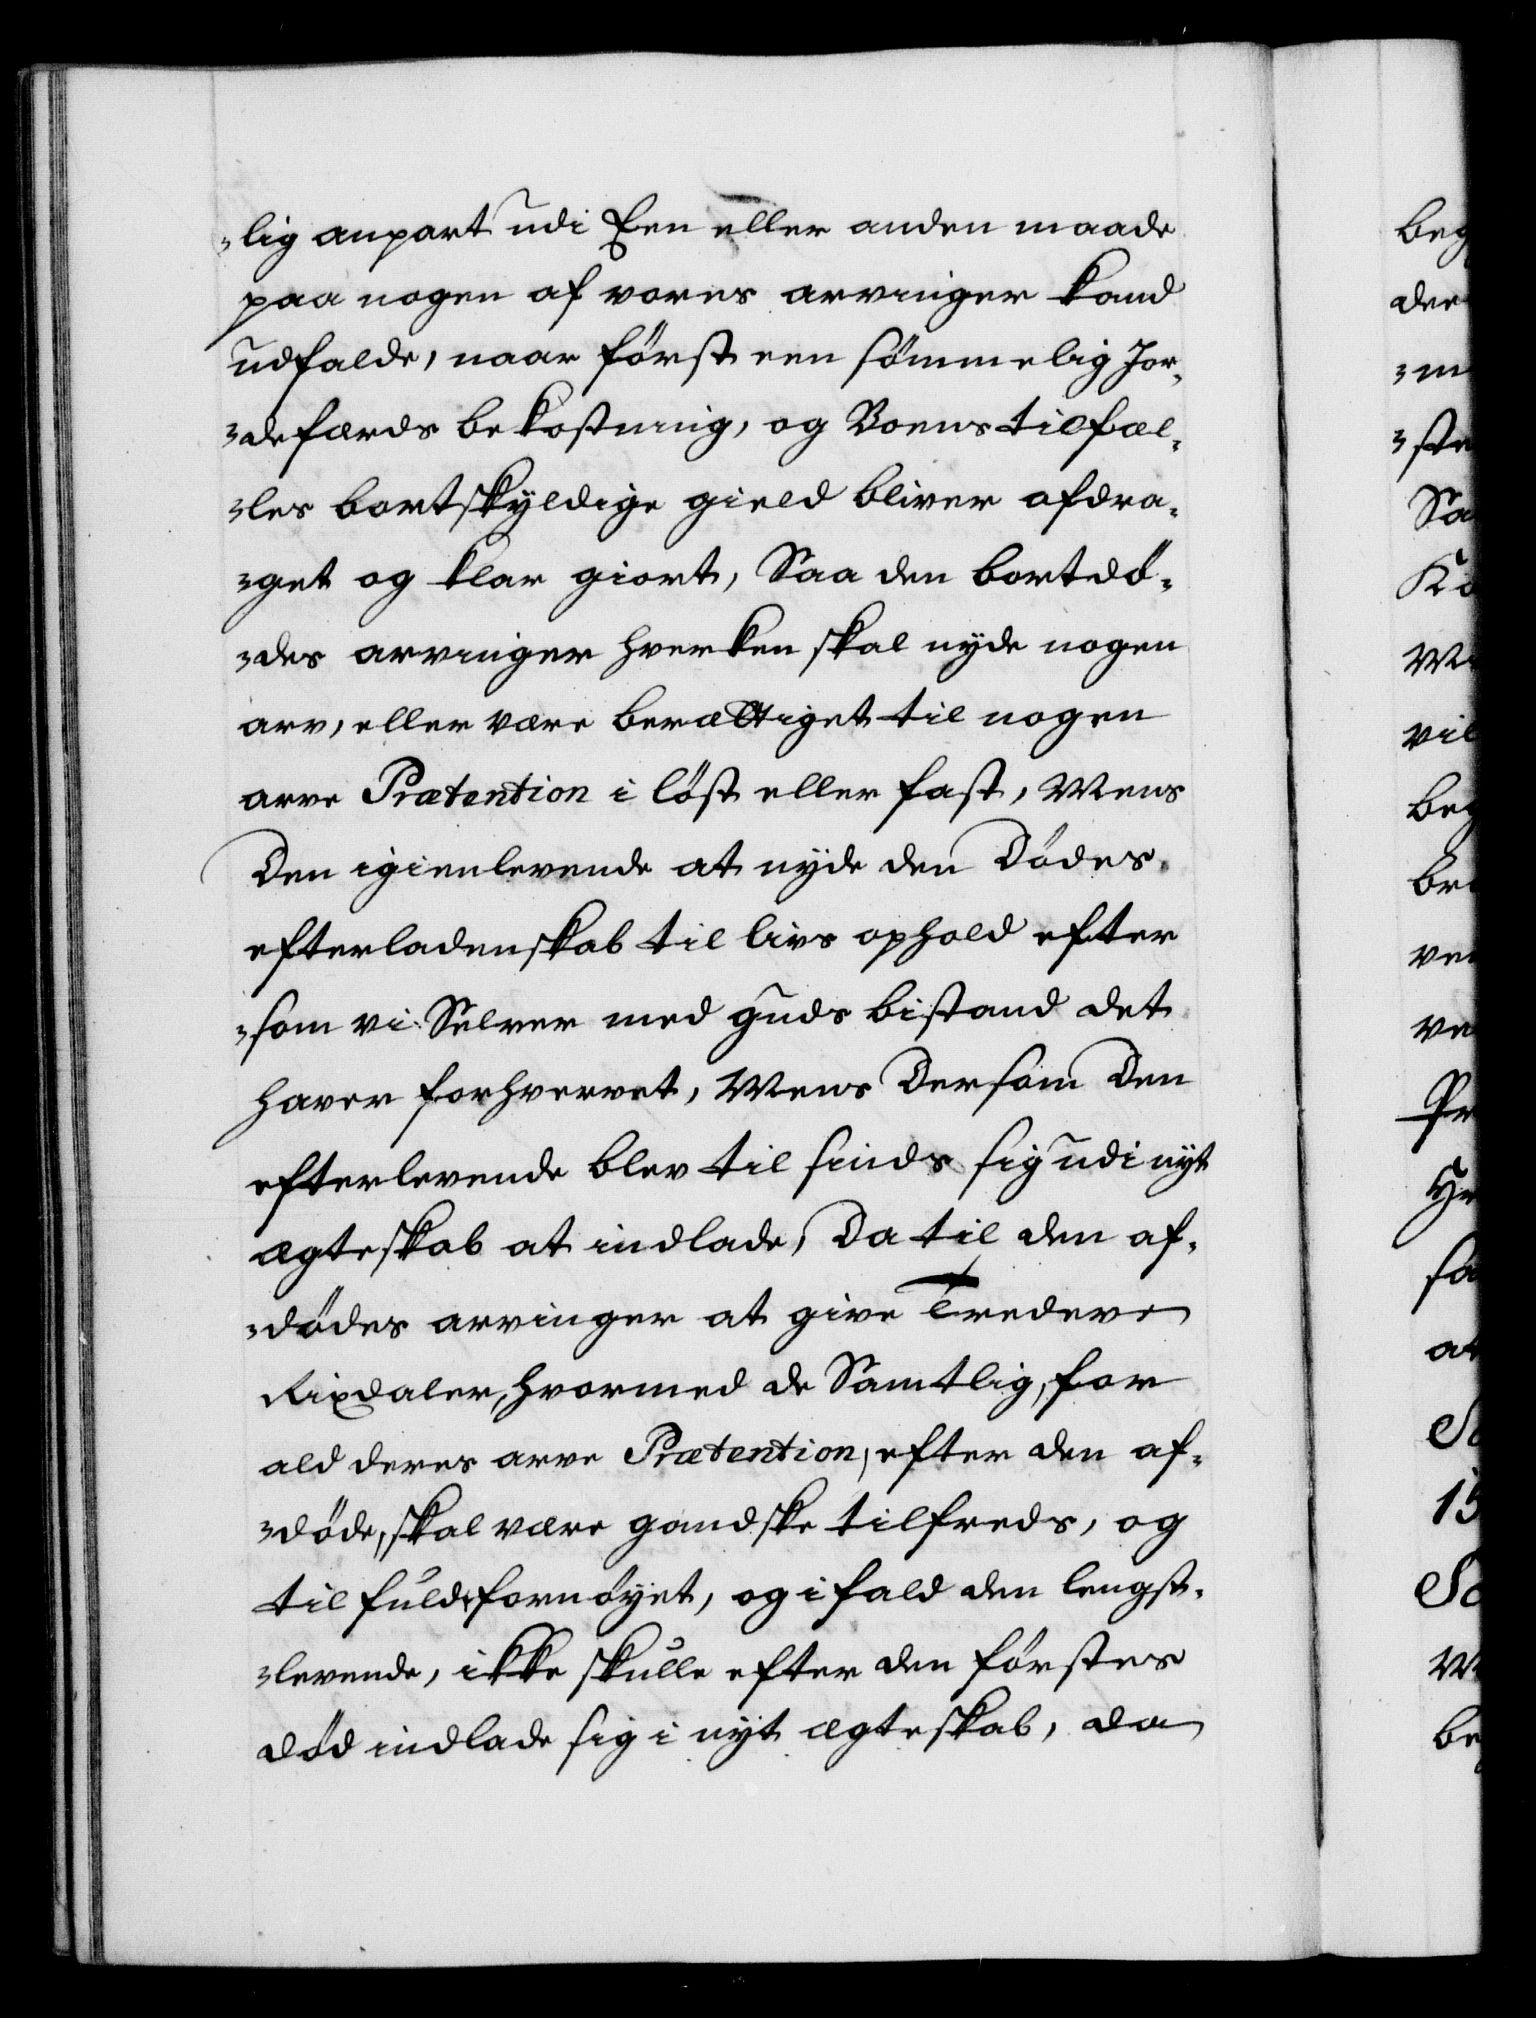 lig anpart udi Een eller anden maade
paa nogen af vores arvinger kand
udfalde, naar först een sömmelig Jor-
defærds bekostning, og Boens tilfæl-
les bortskyldige gield bliver afdra-
get og klar giort, Saa den bortdö-
des arvinger hverken skal nyde nogen
arv, eller være berættiget til nogen
arve Prætention i löst eller fast, Mens
Den igienlevende at nyde den Dödes
efterladenskab til livs ophold efter
som vi Selver med guds bistand det
haver forhvervet, Mens Dersom Den
efterlevende blev til sinds sig udi nyt
ægteskab at indlade, Da til den af-
dödes arvinger at give Tredeve
Rixdaler, hvormed de Samtlig, for
ald deres arve Prætention, efter den af-
döde, skal være gandske tilfreds, og
til fulde fornöyet, og i fald den lengst-
levende, ikke skulle efter den förstes
död indlade sig i nyt ægteskab, da